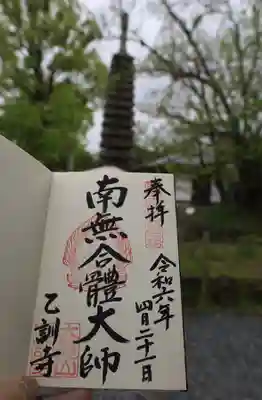 奉拝
令和六年
四月二十一日
南無合體大師
乙訓寺